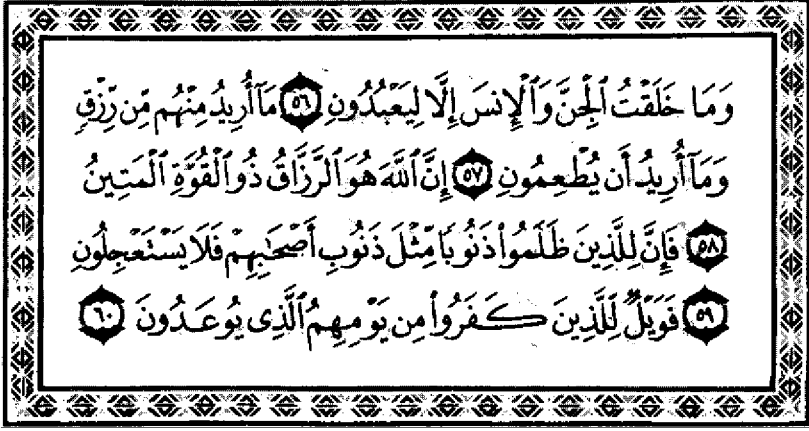 وَمَا خَلَقْتُ ٱلْجِنَّ وَٱلْإِنسَ إِلَّا لِيَعْبُدُونِ ٥٦ مَآ أُرِيدُ مِنْهُم مِّن رِّزْقٍ
وَمَآ أُرِيدُ أَن يُطْعِمُونِ ٥٧ إِنَّ ٱللَّهَ هُوَ ٱلرَّزَّاقُ ذُو ٱلْقُوَّةِ ٱلْمَتِينُ
٥٨ فَإِنَّ لِلَّذِينَ ظَلَمُوا۟ ذَنُوبًا مِّثْلَ ذَنُوبِ أَصْحَٰبِهِمْ فَلَا يَسْتَعْجِلُونِ
٥٩ فَوَيْلٌ لِّلَّذِينَ كَفَرُوا۟ مِن يَوْمِهِمُ ٱلَّذِى يُوعَدُونَ ٦٠